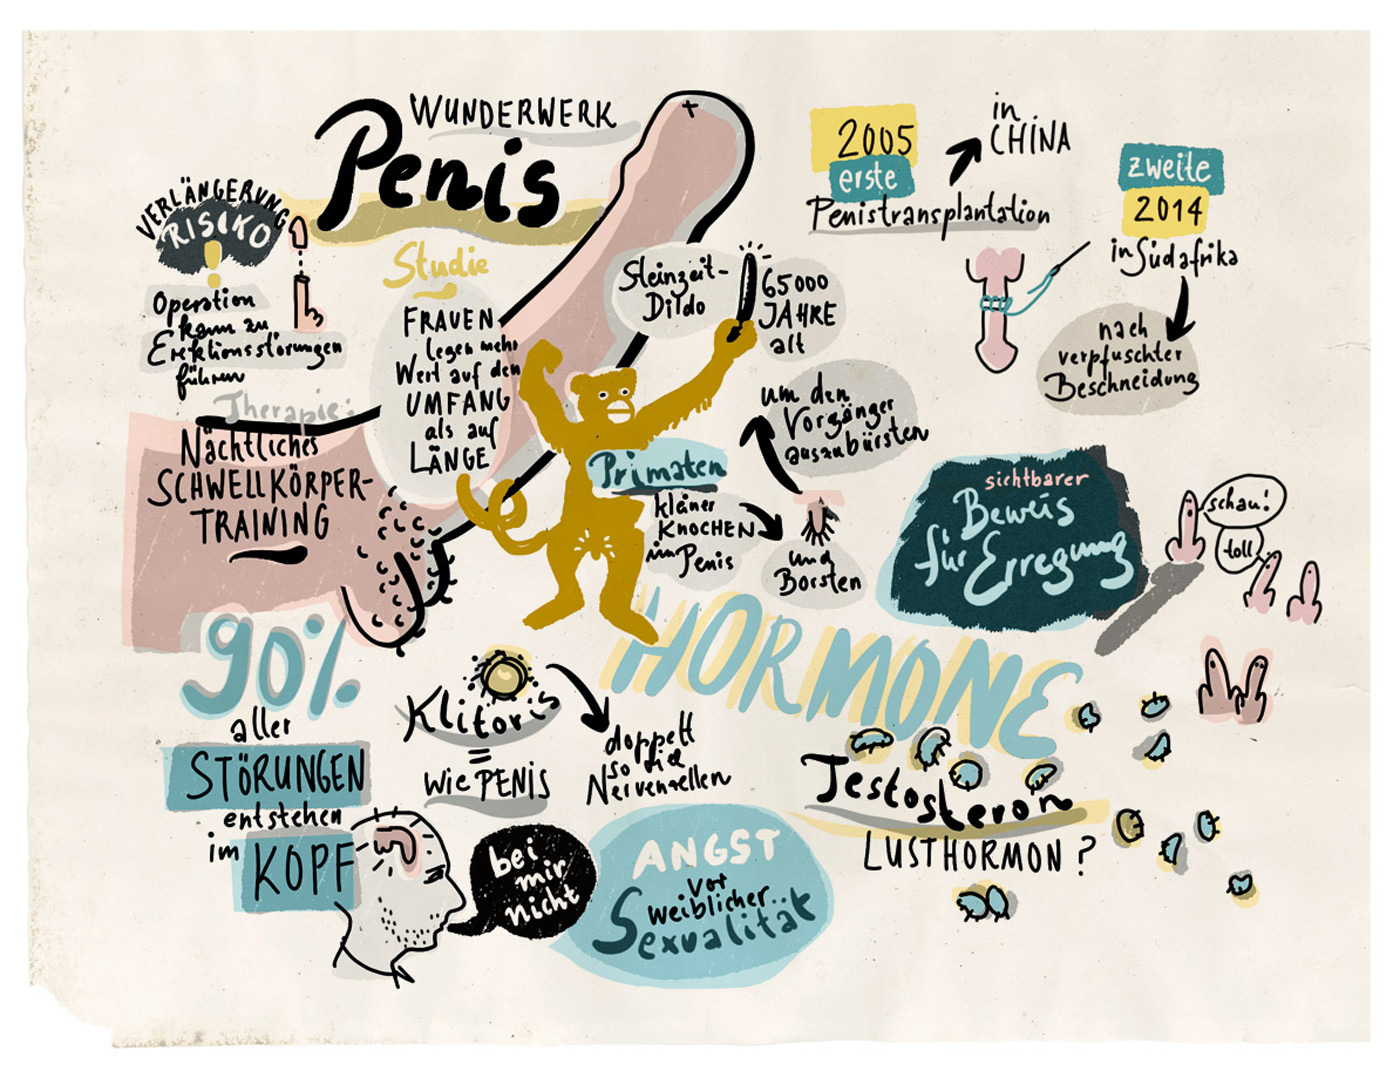 WUNDERWERK
Penis
VERLÄNGERUNG
RISIKO
!
Operation
kann zu
Erektionsstörungen
führen
Studie
FRAUEN
legen mehr
Wert auf den
UMFANG
als auf
LÄNGE
Therapie:
Nächtliches
SCHWELLKÖRPER-
TRAINING
Steinzeit-
Dildo
65000
JAHRE
alt
2005
erste
Penistransplantation
in
CHINA
zweite
2014
in Südafrika
nach
verpfuschter
Beschneidung
Primaten
kleiner
KNOCHEN
im
Penis
und
Borsten
um den
Vorgänger
auszubürsten
sichtbarer
Beweis
für Erregung
schau!
toll
90%
aller
STÖRUNGEN
entstehen
im
KOPF
bei
mir
nicht
Klitoris
=
wie PENIS
doppelt
so die
Nervenzellen
ANGST
vor
weiblicher
Sexualität
HORMONE
Testosteron
LUSTHORMON ?